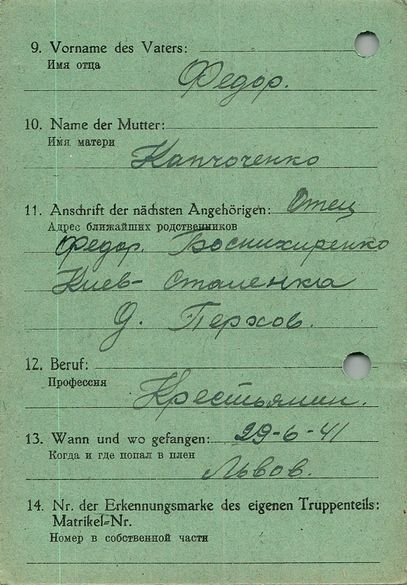 9. Vorname des Vaters:
Имя отца
Федор.
10. Name der Mutter:
Имя матери
Капчоченко
11. Anschrift der nächsten Angehörigen: Отец
Адрес ближайших родственников
Федор.
Киев-
Д.
12. Beruf:
Профессия
Крестьянин.
13. Wann und wo gefangen: 29-6-41
Когда и где попал в плен
Львов.
14. Nr. der Erkennungsmarke des eigenen Truppenteils:
Matrikel-Nr.
Номер в собственной части